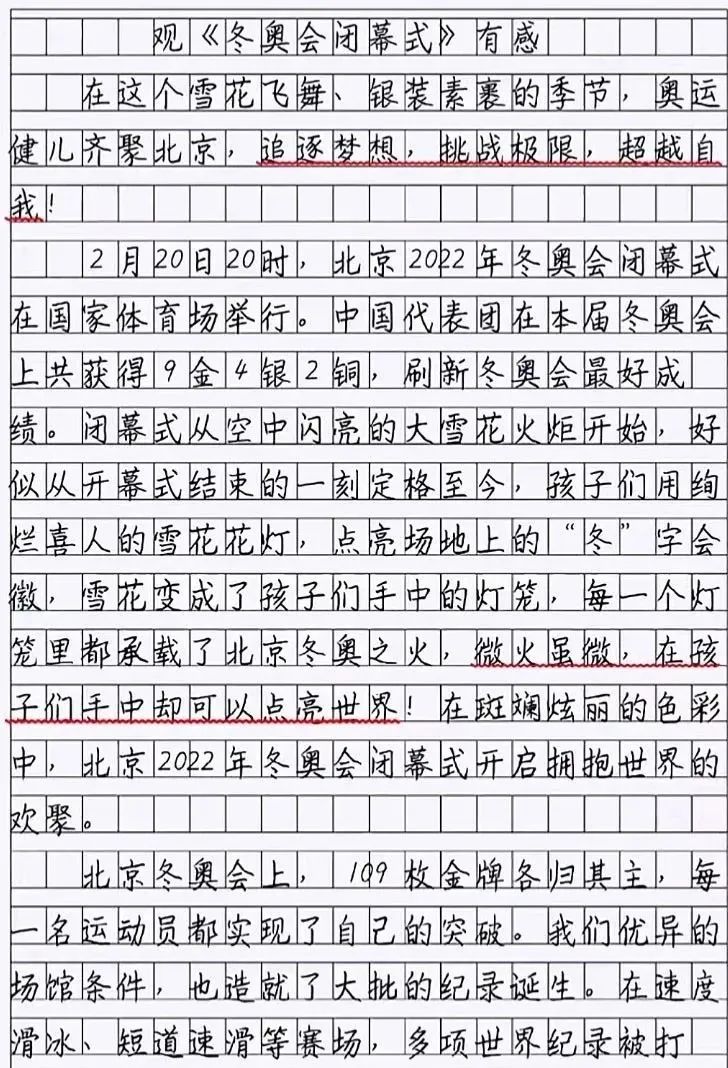 观《冬奥会闭幕式》有感
在这个雪花飞舞、银装素裹的季节，奥运
健儿齐聚北京，追逐梦想，挑战极限，超越自
我！
2月20日20时，北京2022年冬奥会闭幕式
在国家体育场举行。中国代表团在本届冬奥会
上共获得9金4银2铜，刷新冬奥会最好成
绩。闭幕式从空中闪亮的大雪花火炬开始，好
似从开幕式结束的一刻定格至今，孩子们用绚
烂喜人的雪花花灯，点亮场地上的“冬”字会
徽，雪花变成了孩子们手中的灯笼，每一个灯
笼里都承载了北京冬奥之火，微火虽微，在孩
子们手中却可以点亮世界！在斑斓炫丽的色彩
中，北京2022年冬奥会闭幕式开启拥抱世界的
欢聚。
北京冬奥会上，109枚金牌各归其主，每
一名运动员都实现了自己的突破。我们优异的
场馆条件，也造就了大批的纪录诞生。在速度
滑冰、短道速滑等赛场，多项世界纪录被打